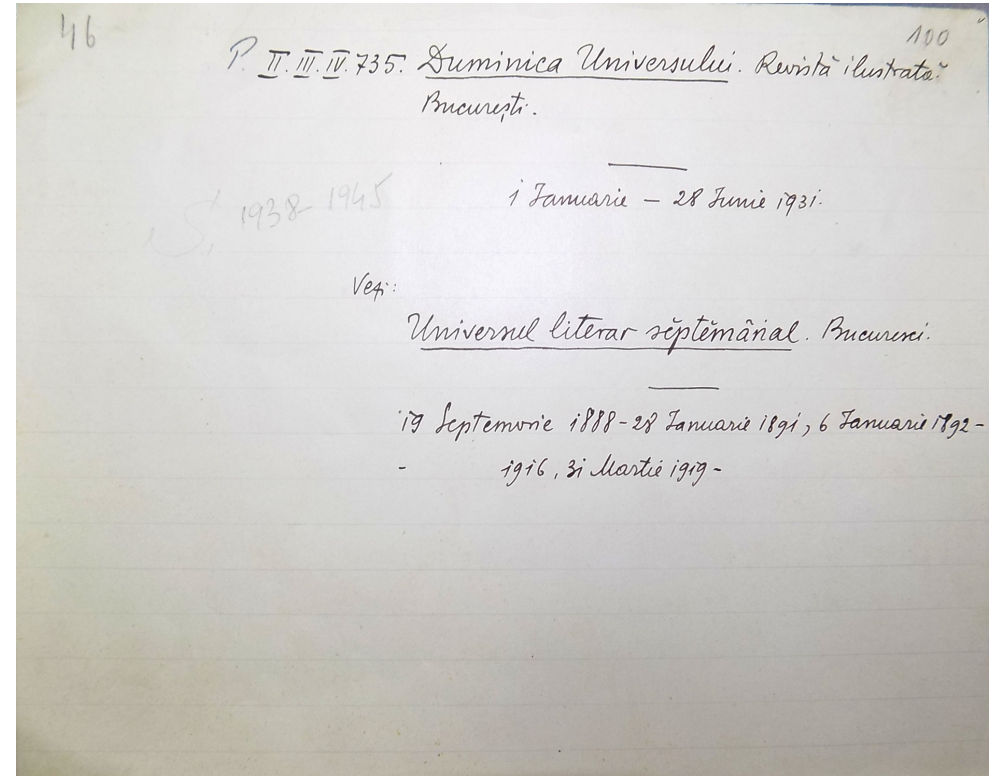 46
100
P. II. III. IV. 735. Duminica Universului. Revistă ilustrată.
București.
1 Ianuarie – 28 Iunie 1931.
1938-1945
Vezi:
Universul literar sĕptĕmânal. Bucuresci.
19 Septemvrie 1888-28 Ianuarie 1891, 6 Ianuarie 1892-
- 1916, 31 Martie 1919-